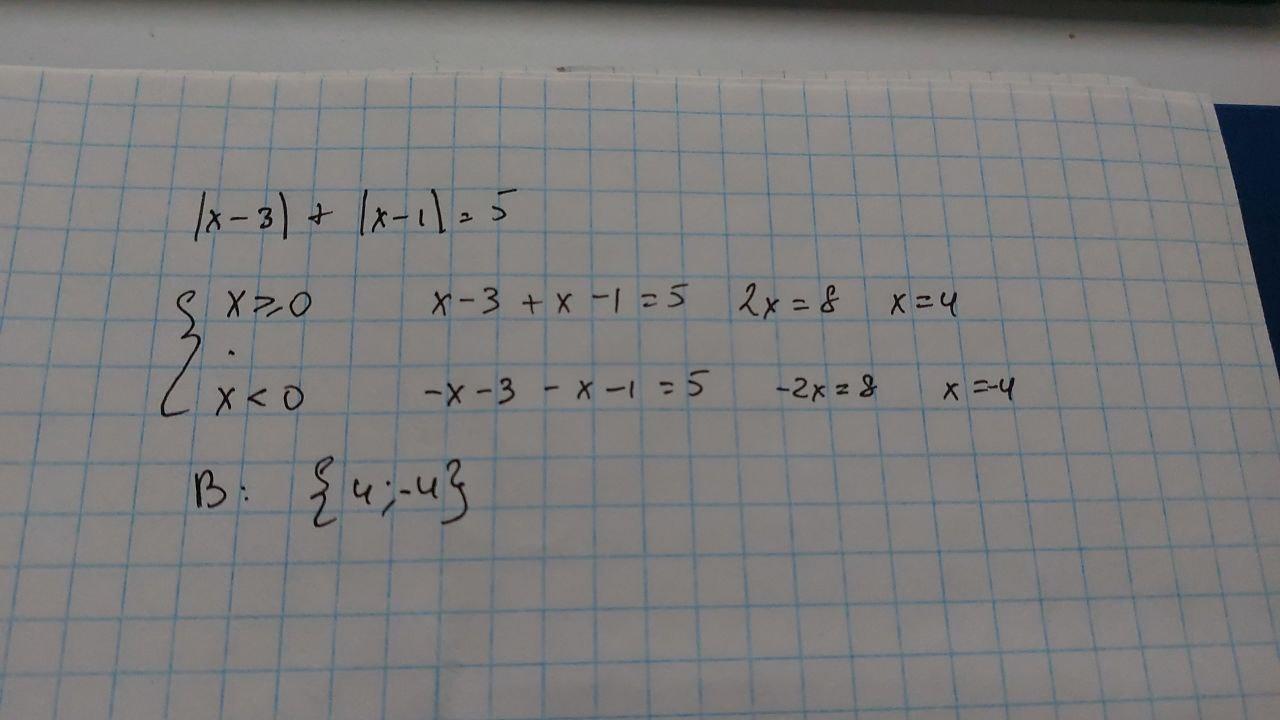 |x-3| + |x-1| = 5
{ x ≥ 0 x-3 + x -1 = 5 2x = 8 x = 4
x < 0 -x -3 - x -1 = 5 -2x = 8 x = -4
В: {4;-4}